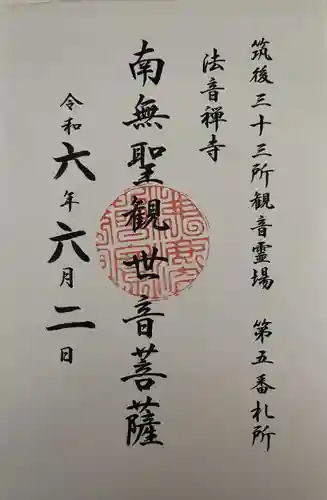 筑後三十三所観音霊場　第五番札所
法音禅寺
南無聖観世音菩薩
令和六年六月二日